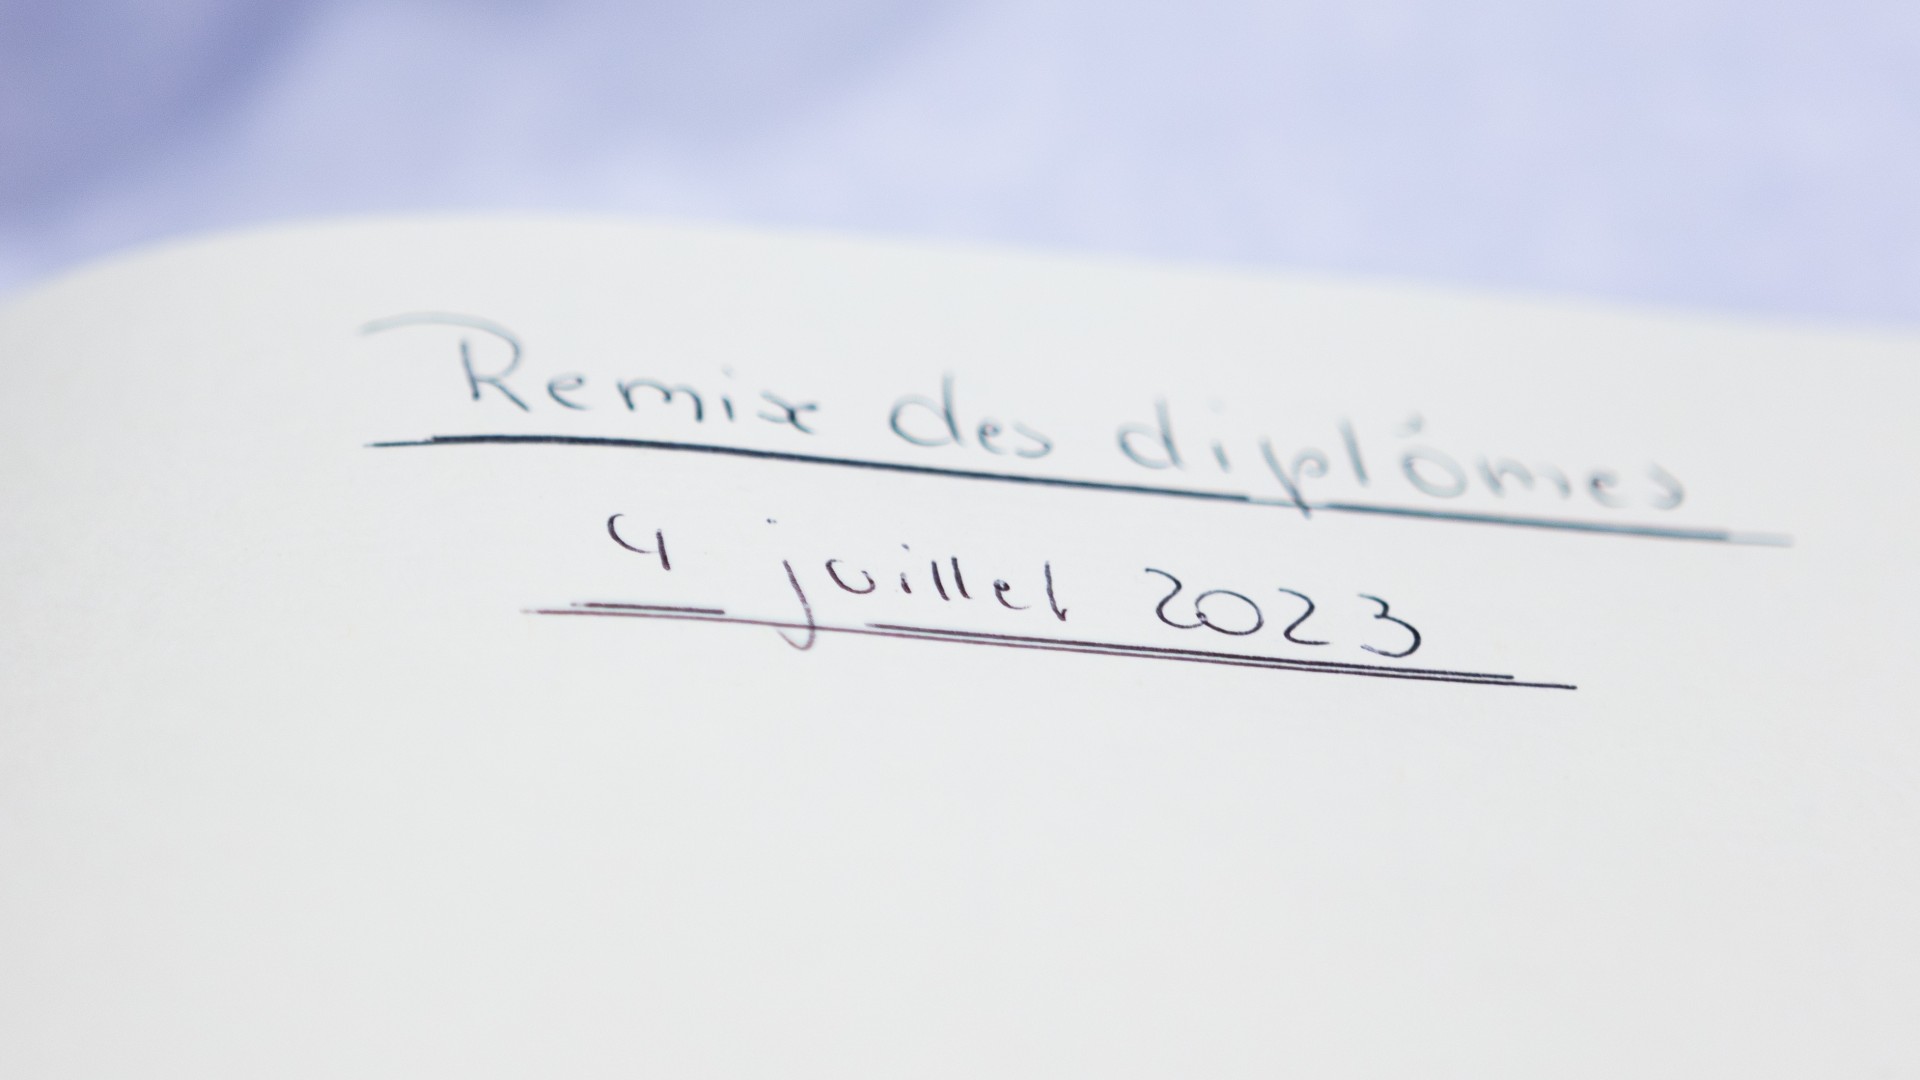 Remix des diplômes
4 juillet 2023